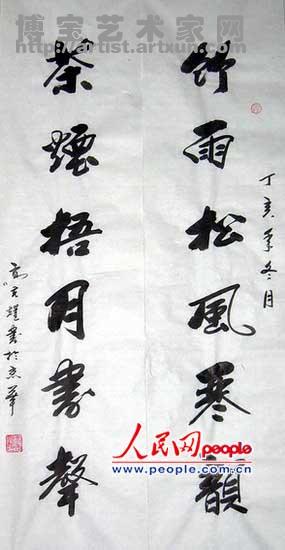 博宝艺术家网
http://artist.artxun.com
丁亥年冬月
竹雨松風琴韻
茶煙梧月書聲
書於京華
人民网people
www.people.com.cn